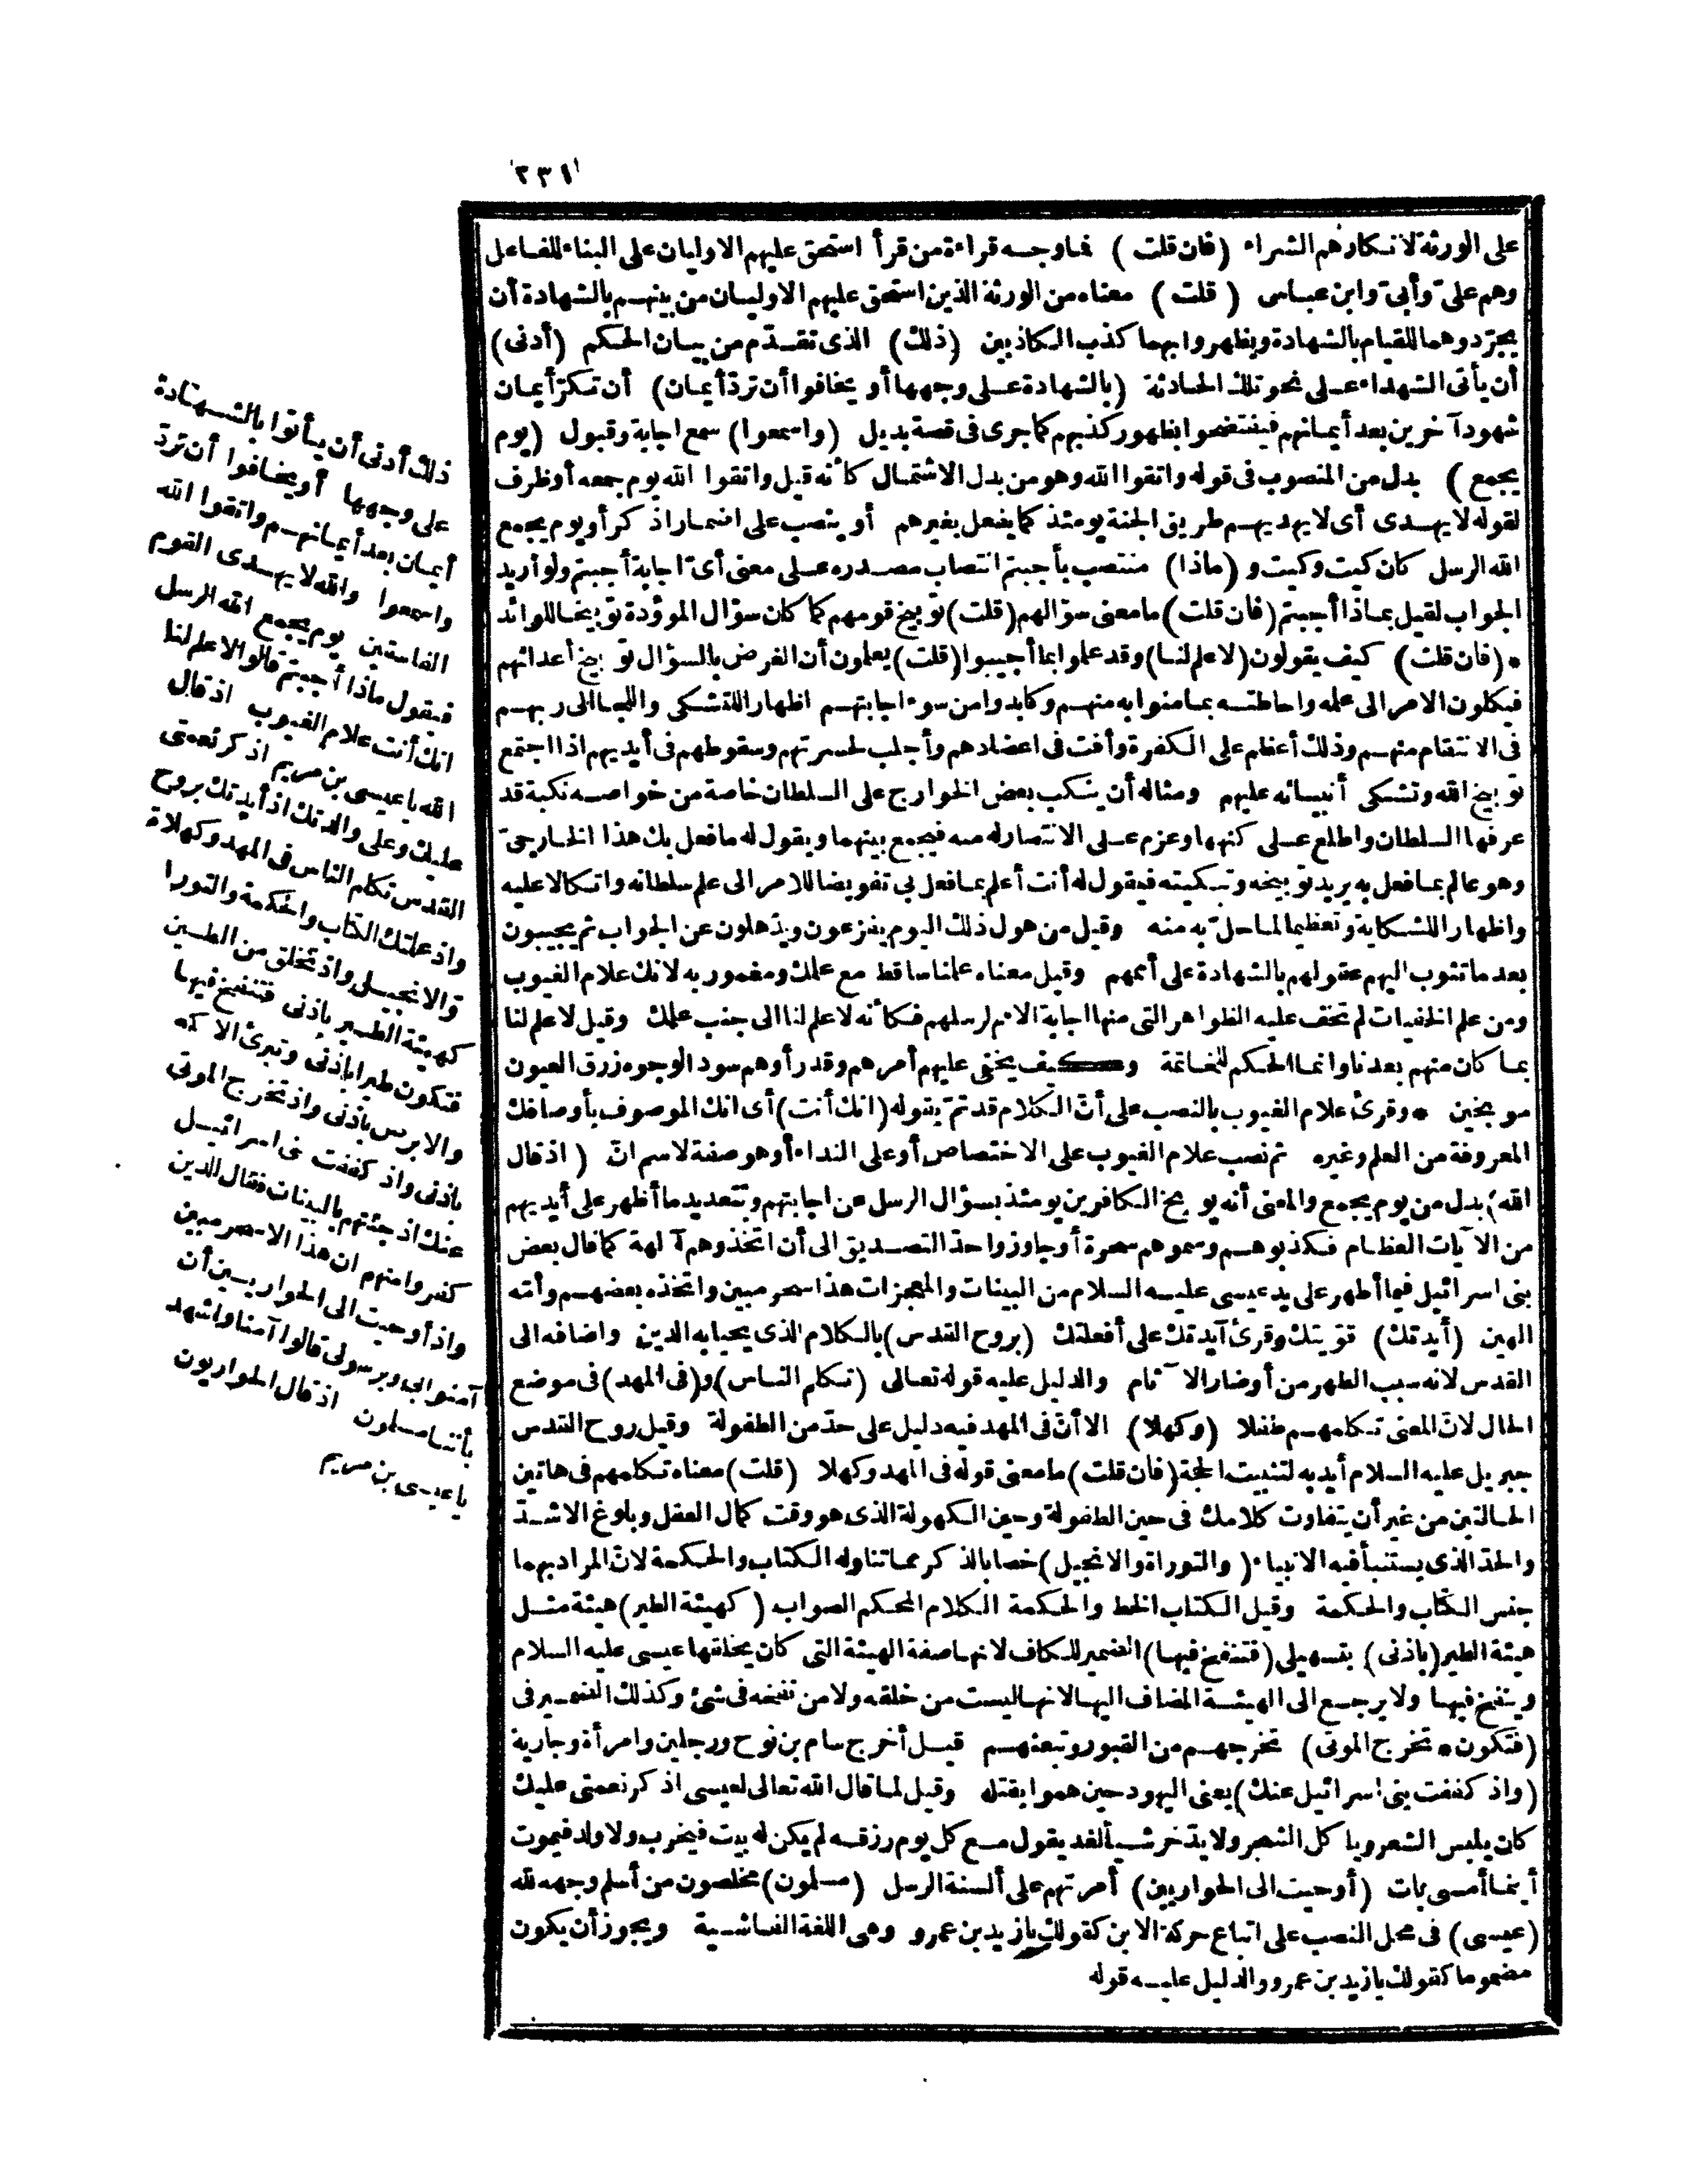 ٢٣١
على الورثة لانكارهم الشراء (فان قلت) فما وجه قراءة من قرأ استحق عليهم الاوليان على البناء للفاعل
وهم علىّ وأبىّ وابن عباس (قلت) معناه من الورثة الذين استحق عليهم الاوليان من بينهم بالشهادة أن
يجرّدوهما للقيام بالشهادة ويظهروا بهما كذب الكاذبين (ذلك) الذى تقدّم من بيان الحكم (أدنى)
أن يأتى الشهداء على نحو تلك الحادثة (بالشهادة على وجهها أو يخافوا أن تردّ أيمان) أن تكرّ أيمان
شهود آخرين بعد أيمانهم فيفتضحوا بظهور كذبهم كما جرى فى قصة بديل (واسمعوا) سمع اجابة وقبول (يوم
يجمع) بدل من المنصوب فى قوله واتقوا الله وهو من بدل الاشتمال كأنه قيل واتقوا الله يوم جمعه أو ظرف
لقوله لا يهدى أى لا يهديهم طريق الجنة يومئذ كما يفعل بغيرهم أو ينصب على اضمار اذكر أو يوم يجمع
الله الرسل كان كيت وكيت و (ماذا) منتصب بأجبتم انتصاب مصدره على معنى أىّ اجابة أجبتم ولو أريد
الجواب لقيل بماذا أجبتم (فان قلت) ما معنى سؤالهم (قلت) توبيخ قومهم كما كان سؤال الموؤدة توبيخا للوائد
* (فان قلت) كيف يقولون (لا علم لنا) وقد علموا بما أجيبوا (قلت) يعلمون أن الغرض بالسؤال توبيخ أعدائهم
فيكلون الامر الى علمه واحاطته بما منوا به منهم وكابدوا من سوء اجابتهم اظهارا للتشكى واللجا الى ربهم
فى الانتقام منهم وذلك أعظم على الكفرة وأفت فى اعضادهم وأجلب لحسرتهم وسقوطهم فى أيديهم اذا اجتمع
توبيخ الله وتشكى أنبيائه عليهم ومثاله أن ينكب بعض الخوارج على السلطان خاصة من خواصه نكبة قد
عرفها السلطان واطلع على كنهها وعزم على الانتصار له منه فيجمع بينهما ويقول له ما فعل بك هذا الخارجىّ
وهو عالم بما فعل به يريد توبيخه وتبكيته فيقول له أنت أعلم بما فعل بى تفويضا للامر الى علم سلطانه واتكالا عليه
واظهارا للشكاية وتعظيما لما حلّ به منه وقيل من هول ذلك اليوم يفزعون ويذهلون عن الجواب ثم يجيبون
بعد ما تثوب اليهم عقولهم بالشهادة على أممهم وقيل معناه علمنا ساقط مع علمك ومغمور به لانك علام الغيوب
ومن علم الخفيات لم تخف عليه الظواهر التى منها اجابة الامم لرسلهم فكأنه لا علم لنا الى جنب علمك وقيل لا علم لنا
بما كان منهم بعدنا وانما الحكم للخاتمة وكيف يخفى عليهم أمرهم وقد رأوهم سود الوجوه زرق العيون
موبخين * وقرئ علام الغيوب بالنصب على أنّ الكلام قد تمّ بقوله (انك أنت) أى انك الموصوف بأوصافك
المعروفة من العلم وغيره ثم نصب علام الغيوب على الاختصاص أو على النداء أو هو صفة لاسم انّ (اذ قال
الله) بدل من يوم يجمع والمعنى أنه يوبخ الكافرين يومئذ بسؤال الرسل عن اجابتهم وبتعديد ما أظهر على أيديهم
من الآيات العظام فكذبوهم وسموهم سحرة أو جاوزوا حد التصديق الى أن اتخذوهم آلهة كما قال بعض
بنى اسرائيل فيما أظهر على يد عيسى عليه السلام من البينات والمعجزات هذا سحر مبين واتخذه بعضهم وأمّه
الهين (أيدتك) قوّيتك وقرئ آيدتك على أفعلتك (بروح القدس) بالكلام الذى يحيا به الدين واضافه الى
القدس لانه سبب الطهر من أوضار الآثام والدليل عليه قوله تعالى (تكلم الناس) و(فى المهد) فى موضع
الحال لانّ المعنى تكلمهم طفلا (وكهلا) الا أنّ فى المهد فيه دليل على حدّ من الطفولة وقيل روح القدس
جبريل عليه السلام أيد به لتثبيت الحجة (فان قلت) ما معنى قوله فى المهد وكهلا (قلت) معناه تكلمهم فى هاتين
الحالتين من غير أن يتفاوت كلامك فى حين الطفولة وحين الكهولة الذى هو وقت كمال العقل وبلوغ الاشدّ
والحدّ الذى يستنبأ فيه الانبياء (والتوراة والانجيل) خصا بالذكر مما تناوله الكتاب والحكمة لانّ المراد بهما
جنس الكتاب والحكمة وقيل الكتاب الخط والحكمة الكلام المحكم الصواب (كهيئة الطير) هيئة مثل
هيئة الطير (باذنى) بتسهيلى (فتنفخ فيها) الضمير للكاف لانها صفة الهيئة التى كان يخلقها عيسى عليه السلام
وينفخ فيها ولا يرجع الى الهيئة المضاف اليها لانها ليست من خلقه ولا من نفخه فى شئ وكذلك الضمير فى
(فتكون * تخرج الموتى) تخرجهم من القبور وتبعثهم قيل أخرج سام بن نوح ورجلين وامرأة وجارية
(واذ كففت بنى اسرائيل عنك) يعنى اليهود حين هموا بقتله وقيل لما قال الله تعالى لعيسى اذكر نعمتى عليك
كان يلبس الشعر ويأكل الشجر ولا يدّخر شيأ لغد يقول مع كل يوم رزقه لم يكن له بيت فيخرب ولا ولد فيموت
أينما أمسى بات (أوحيت الى الحواريين) أمرتهم على ألسنة الرسل (مسلمون) مخلصون من أسلم وجهه لله
(عيسى) فى محل النصب على اتباع حركة الابن كقولك يا زيد بن عمرو وهى اللغة الفاشية ويجوز أن يكون
مضموما كقولك يا زيد بن عمرو والدليل عليه قوله
ذلك أدنى أن يأتوا بالشهادة
على وجهها أو يخافوا أن تردّ
أيمان بعد أيمانهم واتقوا الله
واسمعوا والله لا يهدى القوم
الفاسقين يوم يجمع الله الرسل
فيقول ماذا أجبتم قالوا لا علم لنا
انك أنت علام الغيوب اذ قال
الله يا عيسى بن مريم اذكر نعمتى
عليك وعلى والدتك اذ أيدتك بروح
القدس تكلم الناس فى المهد وكهلا
واذ علمتك الكتاب والحكمة والتورا
ة والانجيل واذ تخلق من الطين
كهيئة الطير باذنى فتنفخ فيها
فتكون طيرا باذنى وتبرئ الاكمه
والابرص باذنى واذ تخرج الموتى
باذنى واذ كففت بنى اسرائيل
عنك اذ جئتهم بالبينات فقال الذين
كفروا منهم ان هذا الا سحر مبين
واذ أوحيت الى الحواريين أن
آمنوا بى وبرسولى قالوا آمنا واشهد
بأننا مسلمون اذ قال الحواريون
يا عيسى بن مريم